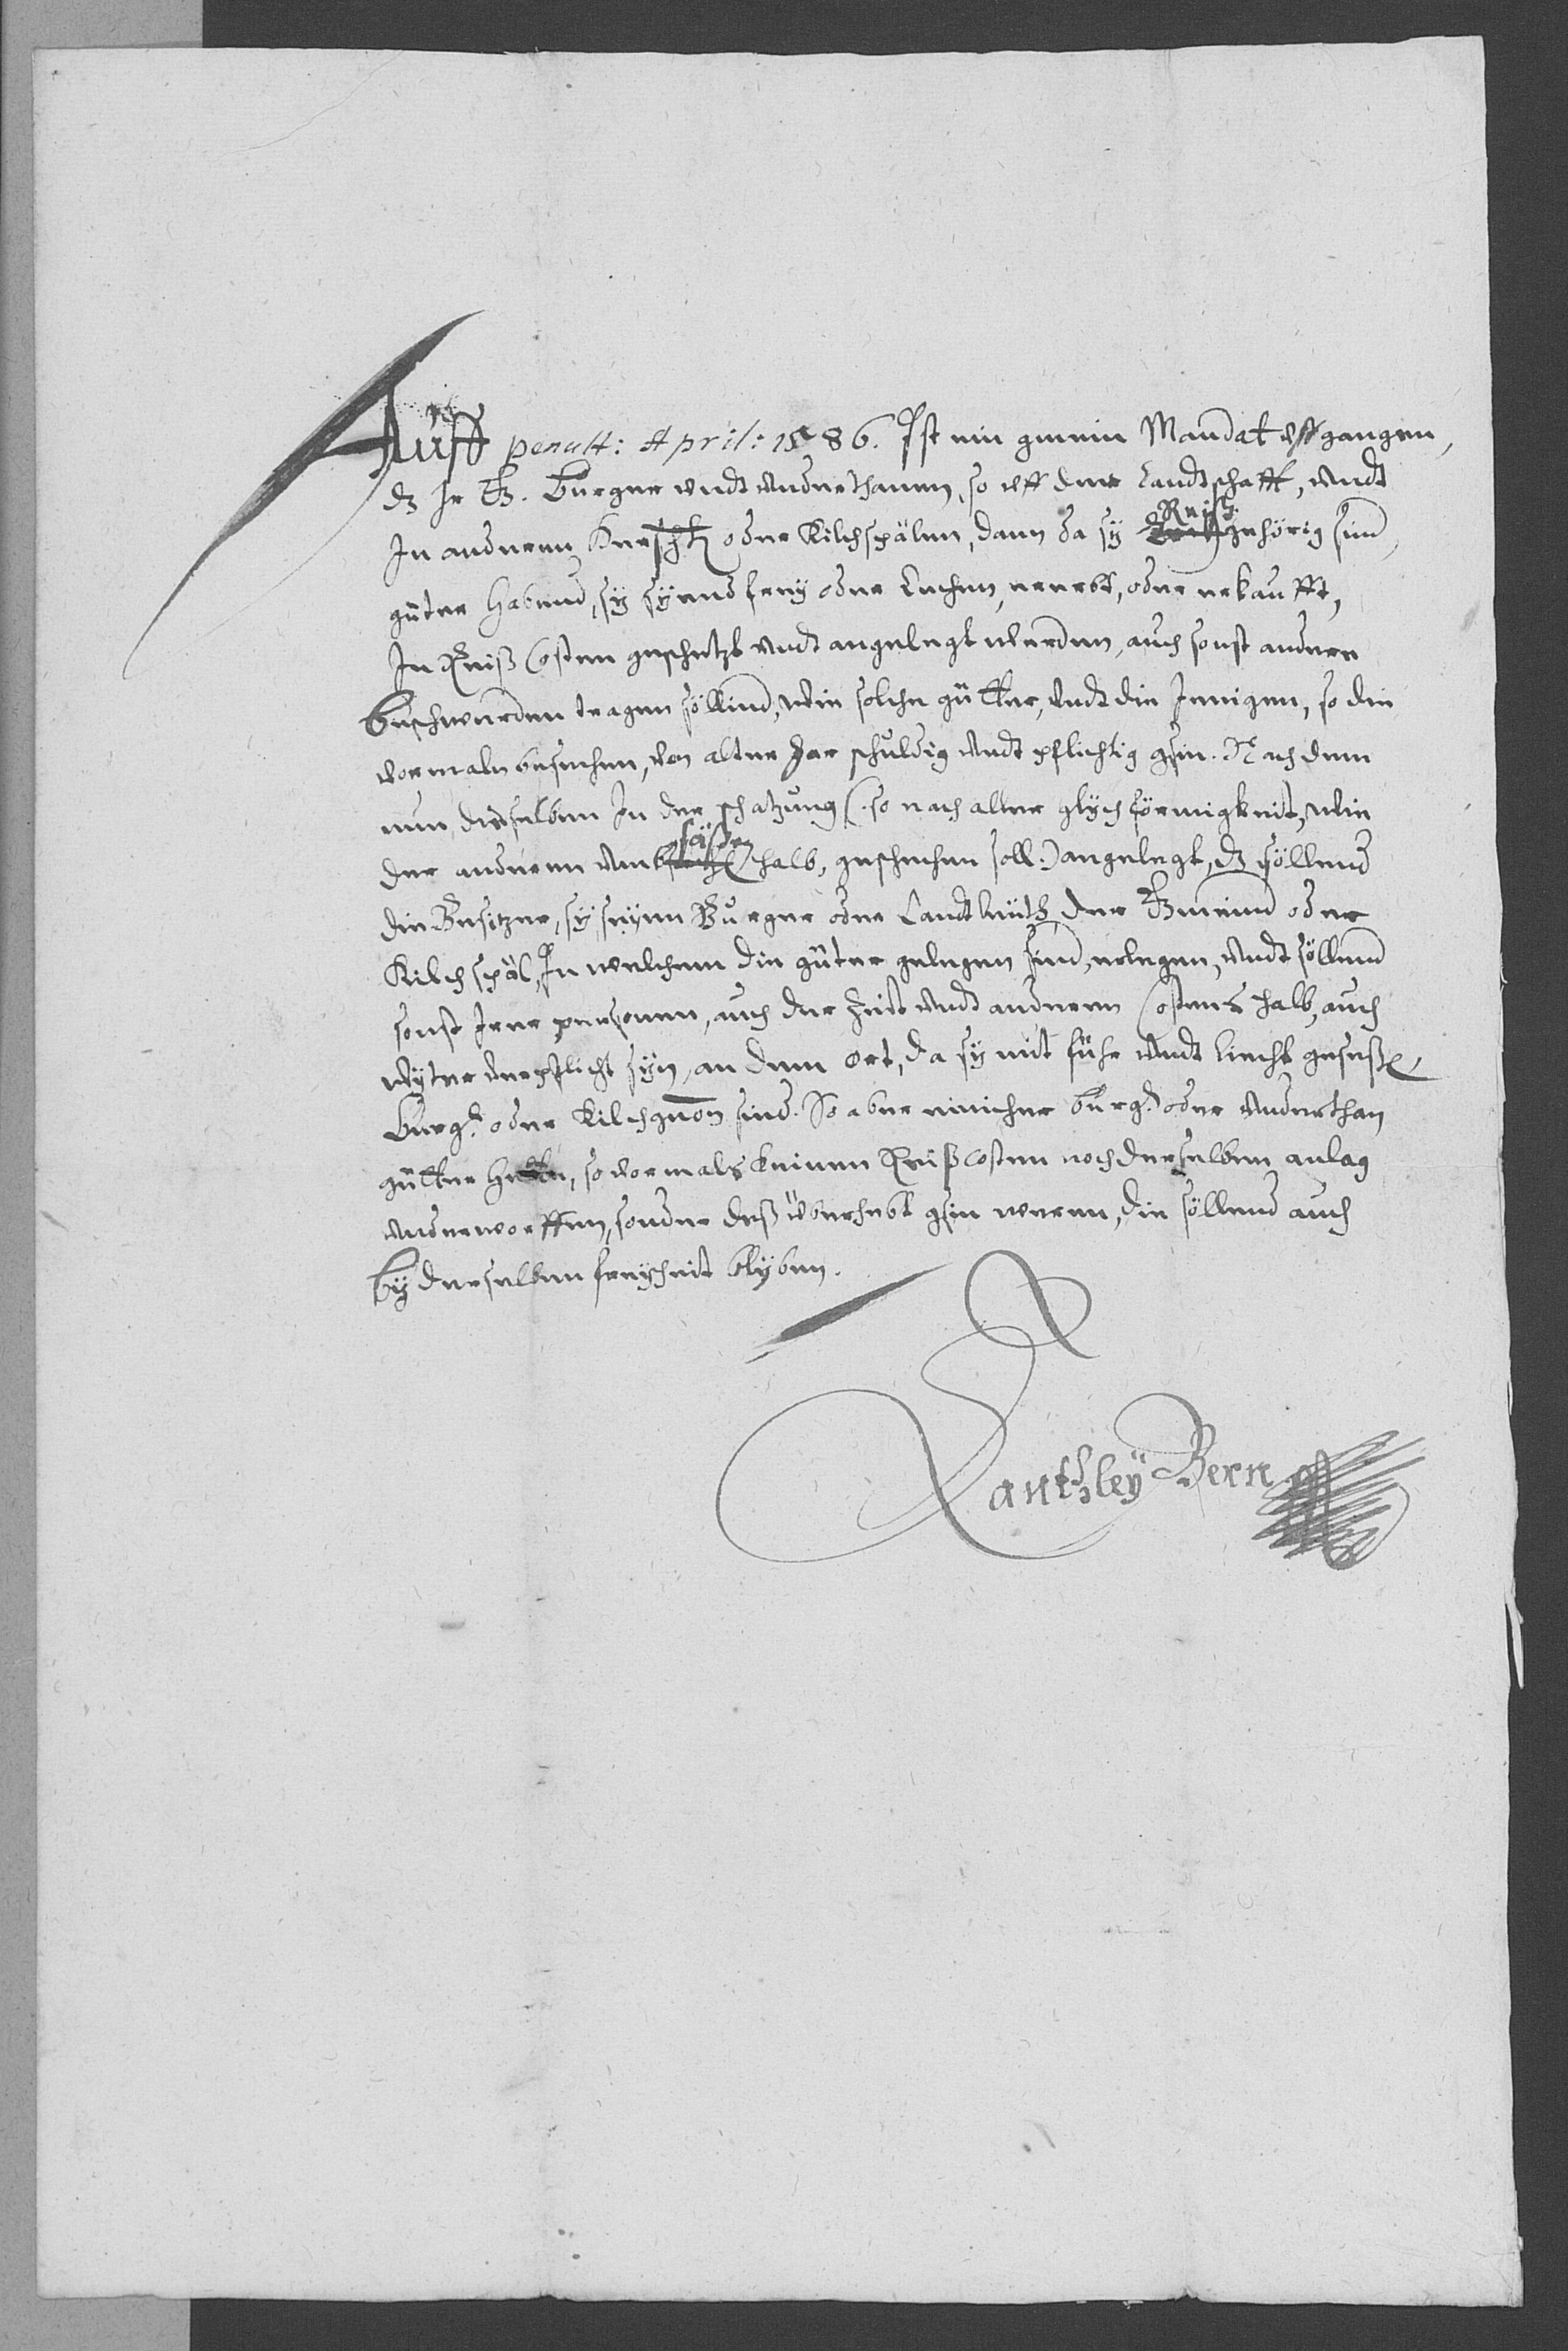 Auff penult: April: 1586. Ist ein gmein Mandat vssgangen,
dz Ir G. Burger vndt Vnderthanen, so vff der Landtschafft, vndt
In anderen Gricht oder Kilchspälen, dann da sy Reiß gehörig sind
güter habend, sy syend frey oder Lechen, ererbt, oder erkaufft,
In Reiß Costen geschetzt vndt angelegt werden, auch sonst andere
beschwerden tragen söllind, wie solche gütter, vndt die Jenigen, so die
vormaln besechen, von alter har schuldig vndt pflichtig gsin. Nach dem
nun dieselben In der schatzung (: so nach aller glychförmigkeit, wie
der anderen Vmbsäßen halb, geschechen soll:) angelegt, dz söllend
die Besitzer, sy seyen Burger oder Landtleüth der Gmeind oder
Kilchspäl, In welchem die güter gelegen sind, erlegen, vndt söllend
sonst Irer personen, auch der Zeit vndt anderen Costens halb, auch
wyter verpflicht syn, an dem Ort, da sy mit führ vndt liecht geseßen,
Burger oder Kilchgnon sind. So aber einicher burger oder Vnderthan
gütter hette, so vormals keinen Reißcosten noch derselben anlag
vnderworffen, sonder deß überhebt gsin weren, die söllend auch
by derselben freyheit blyben.
Cantzley Bern